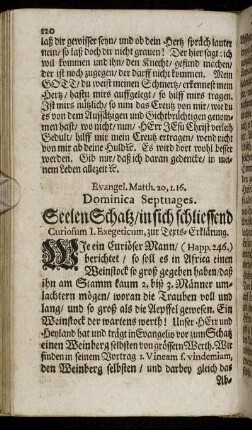 120
laß dir gewisser seyn/ und ob dein Hertz spräch lauter
nein/ so laß doch dir nicht grauen! Der hier sagt: ich
will kommen und ihn/ den Knecht/ gesund machen/
der ist noch zugegen/ der darff nicht kommen. Mein
GOTT/ du weist meinen Schmertz/ erkennest mein
Hertz/ hastu mirs auffgelegt/ so hilff mirs tragen.
Ist mirs nützlich/ so nim das Creutz von mir/ wie du
es von dem Aussätzigen und Gichtbrüchtigen genom-
men hast/ wo nicht/ nun/ HErr JEsu Christ verleih
Gedult/ hilff mir mein Creutz ertragen/ wend nicht
von mir ab deine Huld2c. Es wird dort wohl besser
werden. Gib nur/ daß ich daran gedencke/ in mei-
nem Leben allezeit 2c.
Evangel. Matth. 20, 1. 16.
Dominica Septuages.
Seelen Schatz/ in sich schliessend
Curiosum I. Exegeticum, zur Texts-Erklärung.
WIe ein Curiöser Mann/ (Happ. 246.)
berichtet/ so soll es in Africa einen
Weinstock so groß gegeben haben/ daß
ihn am Stamm kaum 2. biß 3. Männer um-
lachtern mögen/ woran die Trauben voll und
lang/ und so groß als die Aepffel gewesen. Ein
Weinstock der wartens werth! Unser HErr und
Heyland hat und trägt in Evangelio vor zum Schatz
einen Weinberg selbsten von grössern Werth. Wir
finden in seinem Vortrag 1. Vineam s. vindemiam,
den Weinberg selbsten/ und darbey gleich das
Ab-